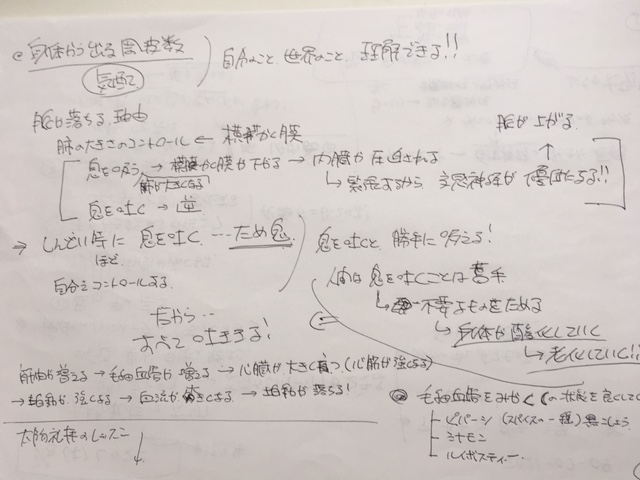 身体から出る周波数
自分のこと、世界のこと、理解できる!!
脈が落ちる理由
肺の大きさのコントロール ← 横隔膜
脈が上がる
息を吸う → 横隔膜が下がる → 内臓が圧迫される
肺が大きくなる
↳ 緊張するから 交感神経が 優位になる!!
息を吐く → 逆
→ しんどい時に 息を吐く … ため息
ほど、
自分をコントロールする
息を吐くと、勝手に吸える!
人間は 息を吐くことは 苦手
↳ 不要なものをためる
↳ 身体が酸化していく
↳ 老化していく!!
だから…
すべて 吐ききる!
筋肉が増える → 毛細血管が増える → 心臓が大きく育つ(心筋が強くなる)
→ 拍動が強くなる → 血流が大きくなる → 拍動が落ちる!
毛細血管 の状態を良くして
ピパーシ (スパイスの一種) 黒こしょう
シナモン
ルイボスティー
太陽礼拝のレッスン